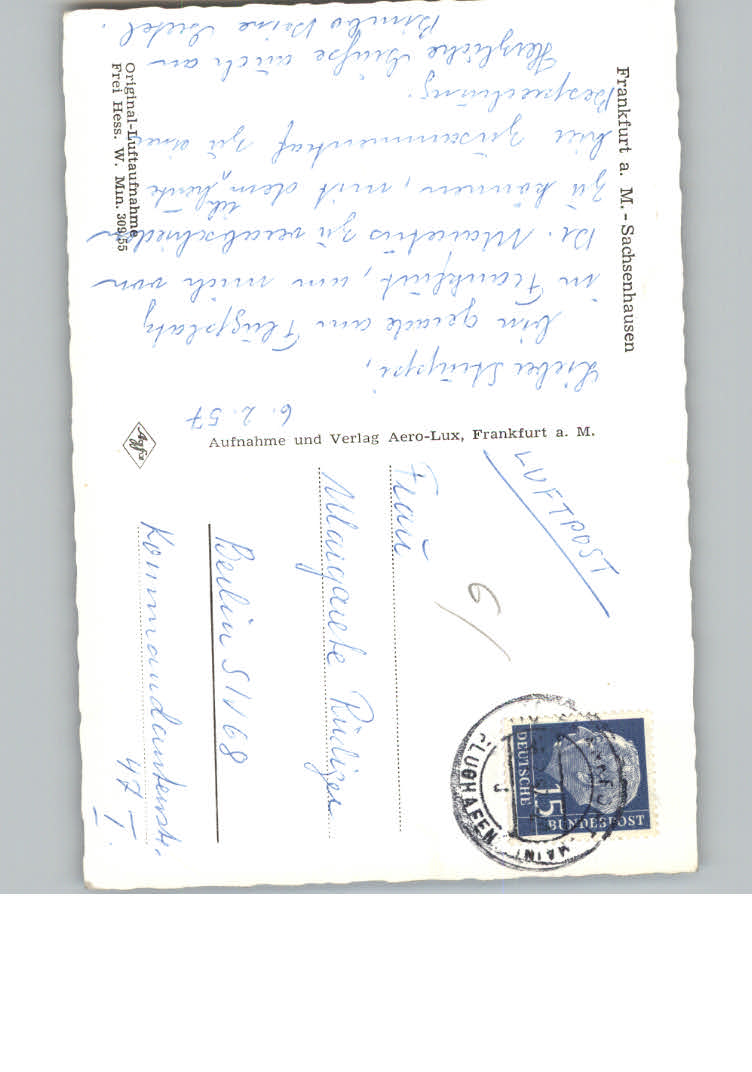 Frankfurt a. M. - Sachsenhausen
6. 2. 57
Lieber Struppi,
bin gerade am Flugplatz
in Frankfurt, um mich von
Dr. Martins zu verabschieden
zu können, mit dem ich heute
hier zusammentraf zu einer
Besprechung.
Herzliche Grüße auch an
Bimbo Deine Liesel.
Original-Luftaufnahme
Frei Hess. W. Min. 309/55
Aufnahme und Verlag Aero-Lux, Frankfurt a. M.
Agfa
LUFTPOST
6/
DEUTSCHE
BUNDESPOST
15
FLUGHAFEN
(MAIN)
Frau
Margarete Rüdiger
Berlin SW 68
Kommandantenstr.
47 I.